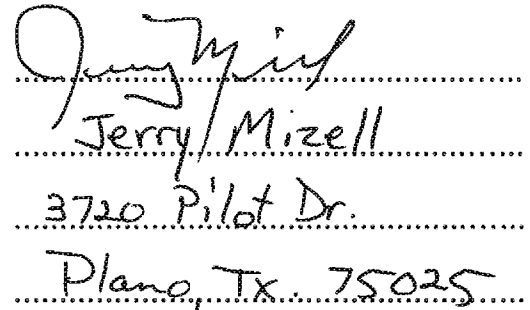 Jerry Mizell
Jerry Mizell
3720 Pilot Dr.
Plano, Tx. 75025